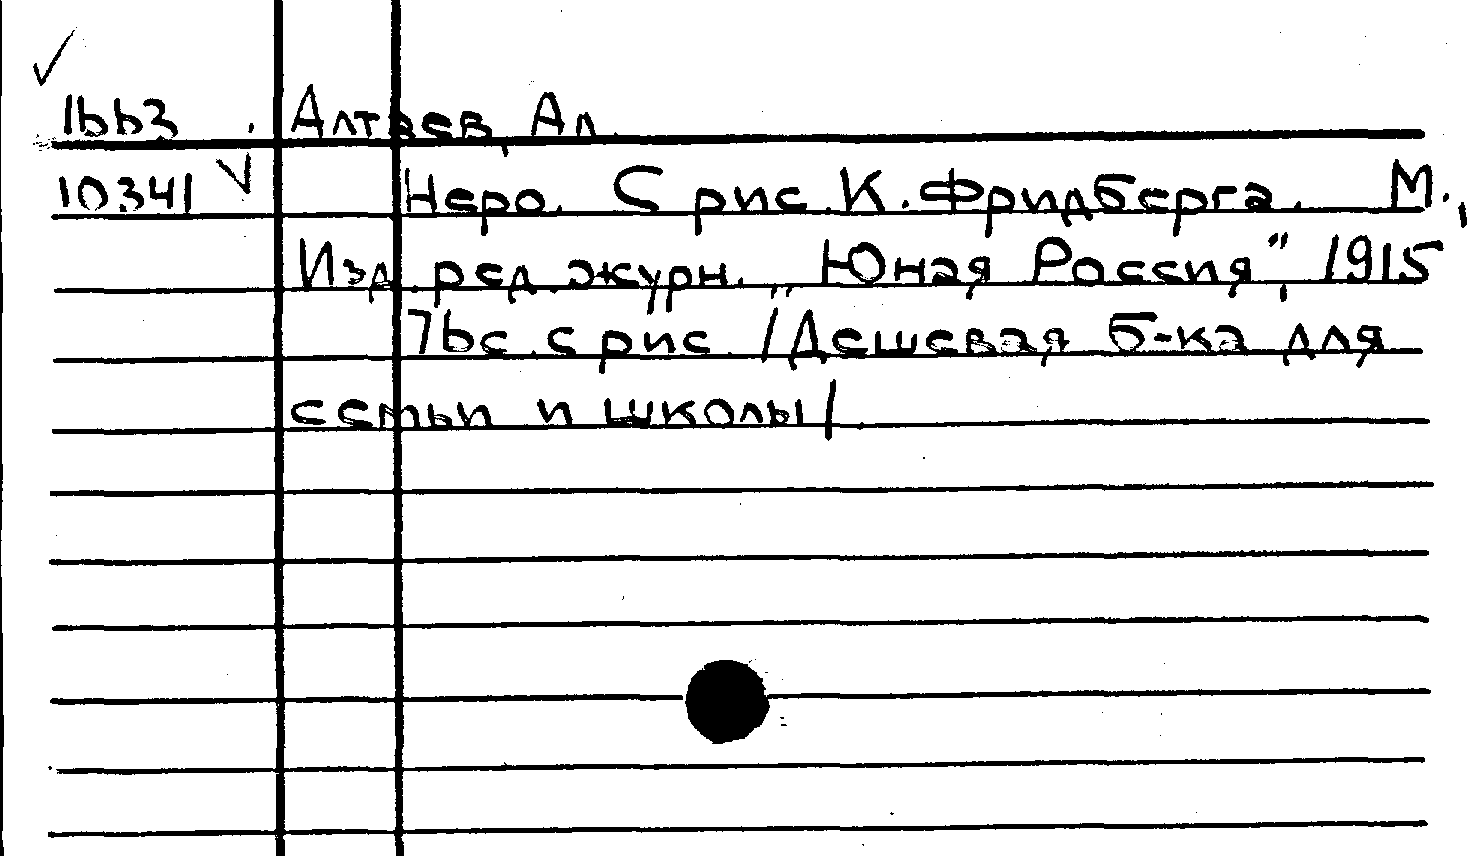 1663 Алтаев, Ал.
10341 Неро. С рис. К. Фридберга. М.,
Изд. ред. журн. „Юная Россия", 1915
76с. с рис. /Дешевая б-ка для
семьи и школы/